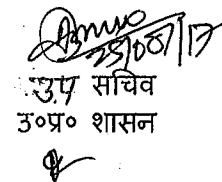 25/07/17
उप सचिव
उ०प्र० शासन